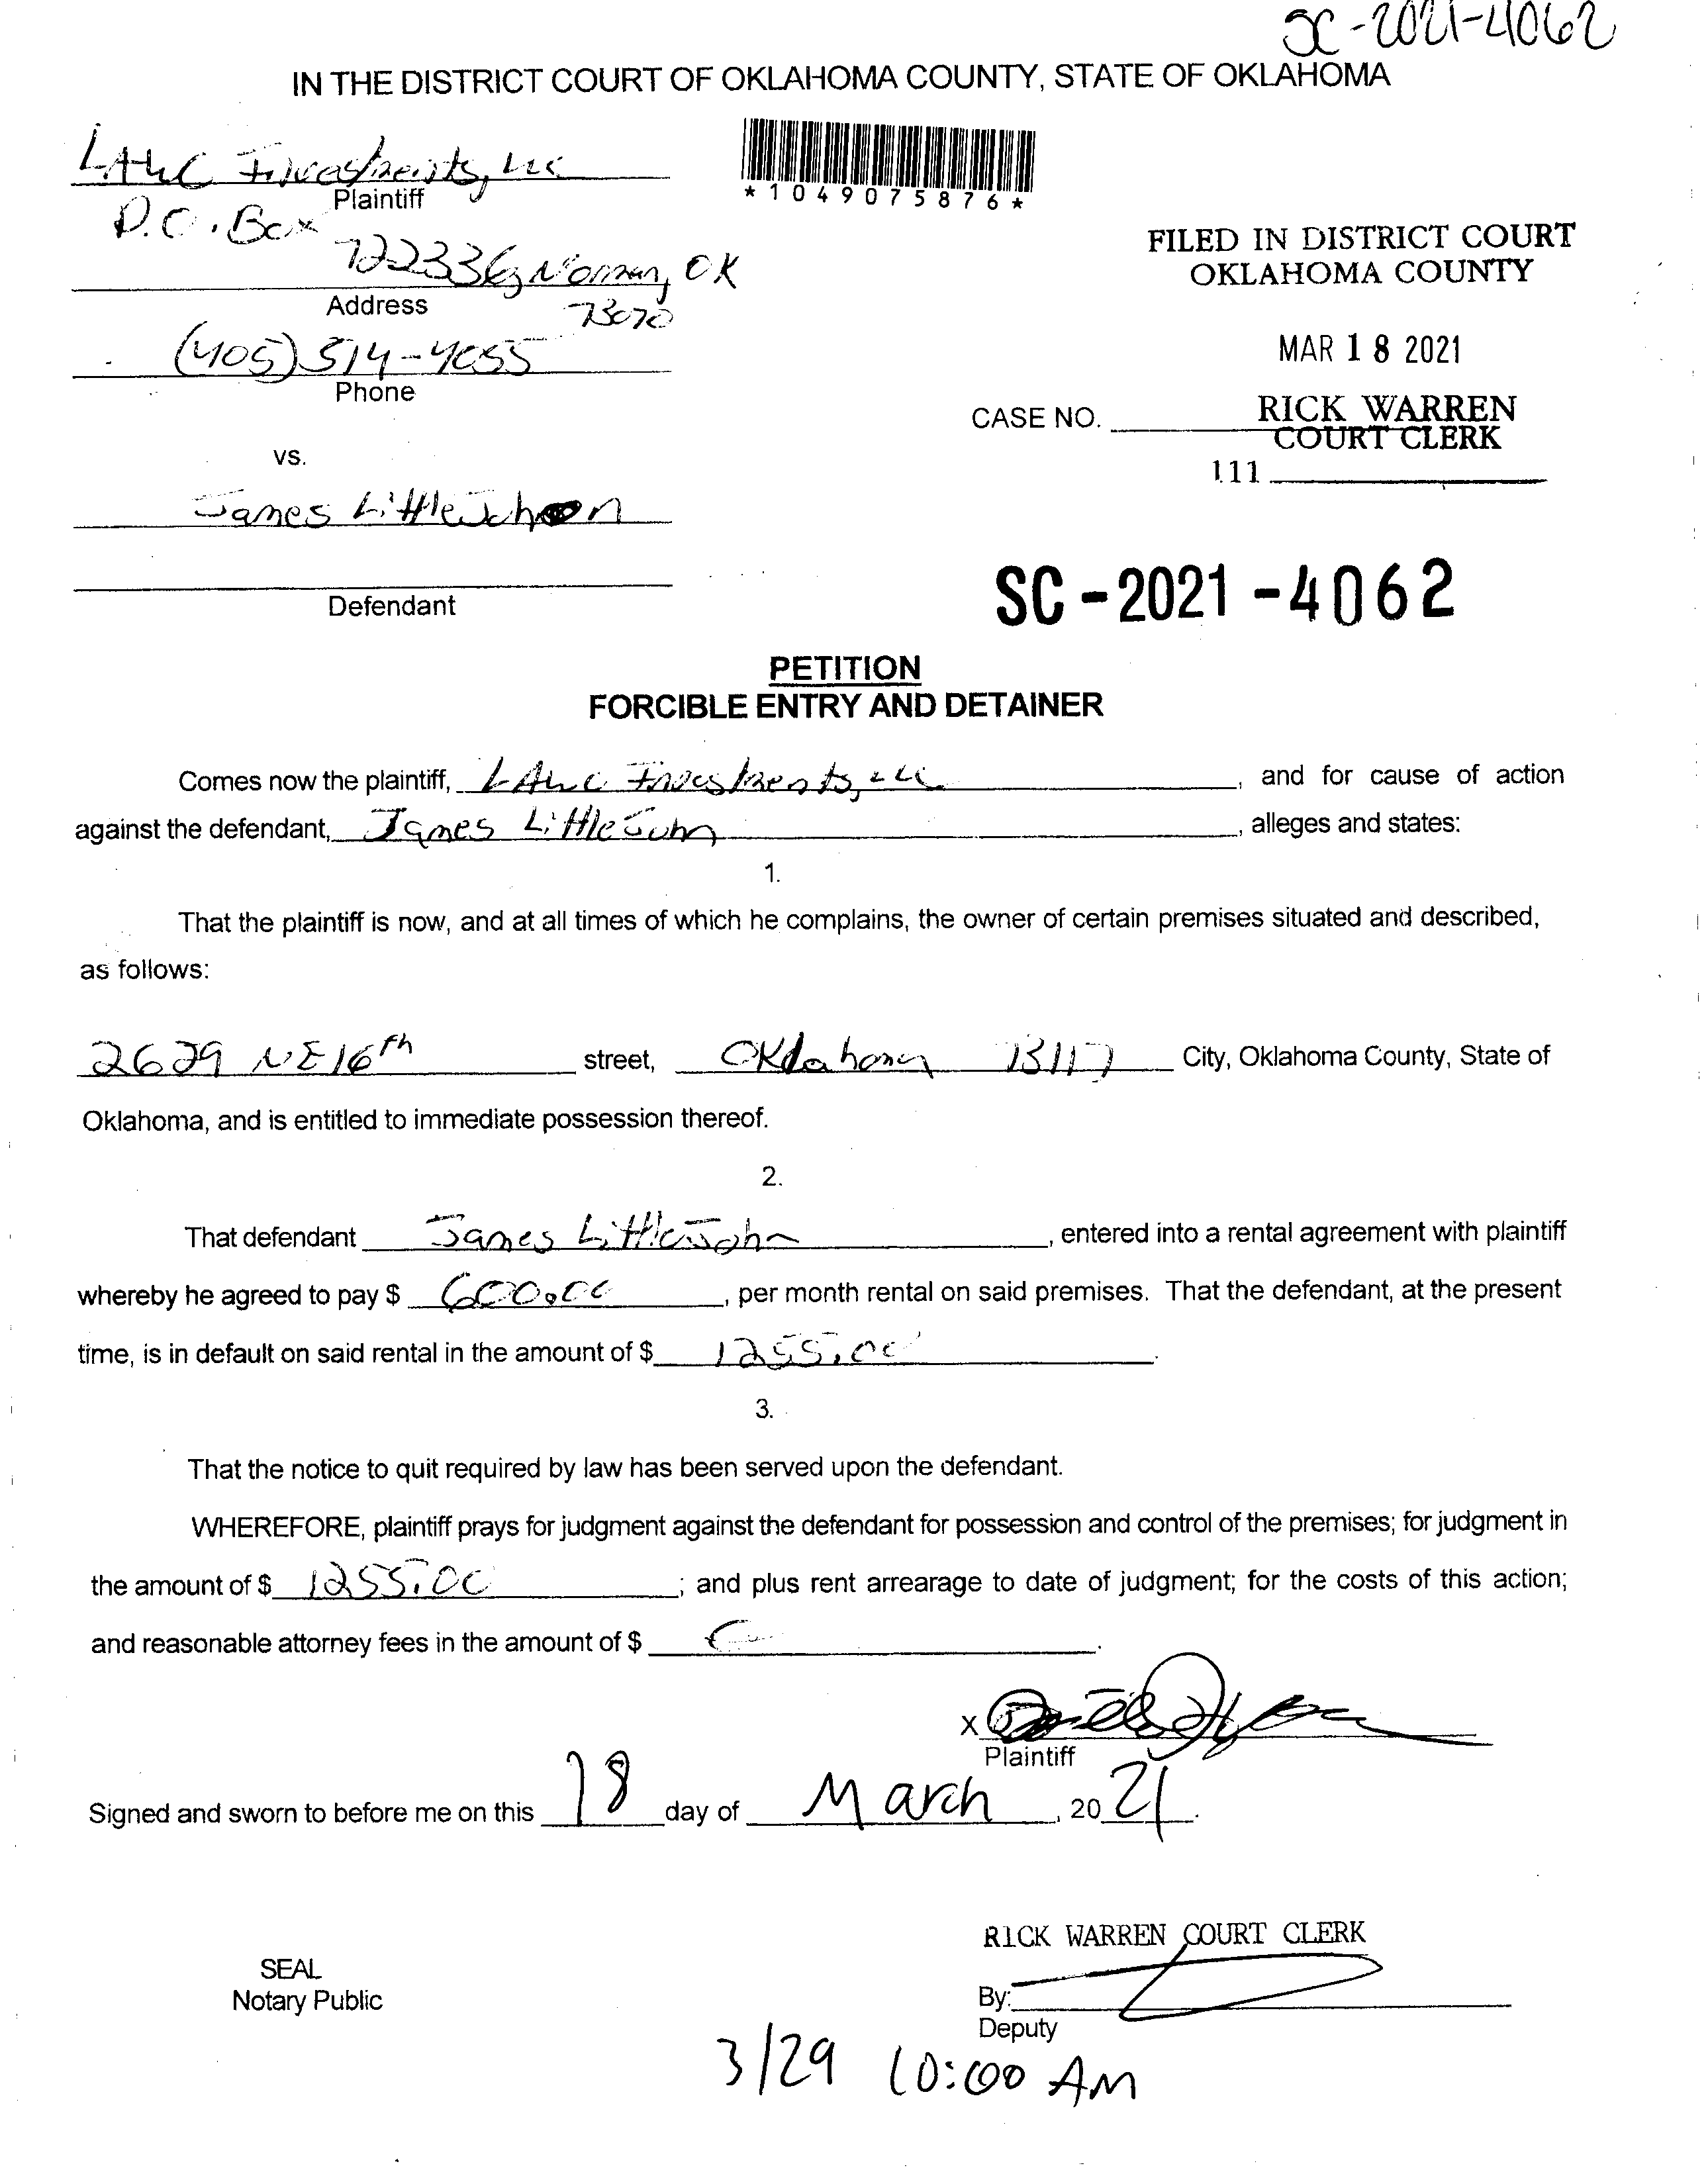 SC-2021-4062
IN THE DISTRICT COURT OF OKLAHOMA COUNTY, STATE OF OKLAHOMA
Investments, LLC
Plaintiff
*1049075876*
P.O. Box
722336, Norman, OK
Address
73070
(405) 514-4055
Phone
FILED IN DISTRICT COURT
OKLAHOMA COUNTY
MAR 18 2021
CASE NO. RICK WARREN
COURT CLERK
111
vs.
James LittleJohn
Defendant
SC-2021-4062
PETITION
FORCIBLE ENTRY AND DETAINER
Comes now the plaintiff, Investments, LLC, and for cause of action
against the defendant, James LittleJohn, alleges and states:
1.
That the plaintiff is now, and at all times of which he complains, the owner of certain premises situated and described,
as follows:
2629 NE 16th street, Oklahoma 73117 City, Oklahoma County, State of
Oklahoma, and is entitled to immediate possession thereof.
2.
That defendant James LittleJohn, entered into a rental agreement with plaintiff
whereby he agreed to pay $ 600.00, per month rental on said premises. That the defendant, at the present
time, is in default on said rental in the amount of $ 1255.00.
3.
That the notice to quit required by law has been served upon the defendant.
WHEREFORE, plaintiff prays for judgment against the defendant for possession and control of the premises; for judgment in
the amount of $ 1255.00; and plus rent arrearage to date of judgment; for the costs of this action;
and reasonable attorney fees in the amount of $
X
Plaintiff
Signed and sworn to before me on this 18 day of March, 2021.
RICK WARREN COURT CLERK
SEAL
Notary Public
By:
Deputy
3/29 10:00 AM